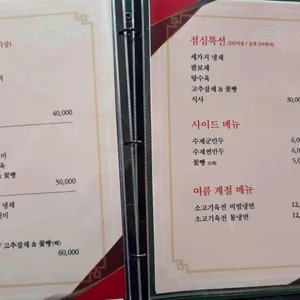 미
40,000
미
& 꽃빵
50,000
냉채
미
고추잡채 & 꽃빵(택)
60,000
점심특선
세가지 냉채
팔보채
탕수육
고추잡채 & 꽃빵
식사
30,00
사이드 메뉴
수제군만두
6,00
수제찐만두
꽃빵
여름 계절 메뉴
소고기육전 비빔냉면
12,
소고기육전 물냉면
12,